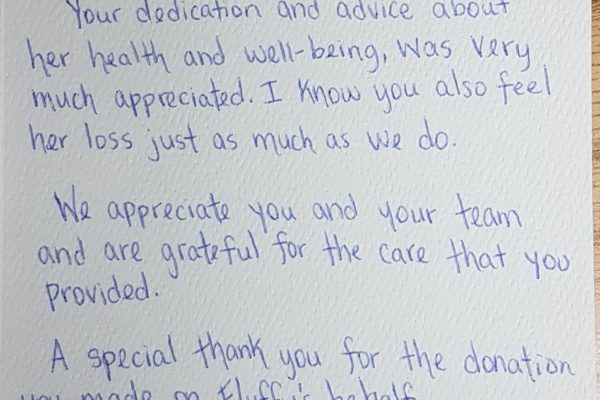 Your dedication and advice about
her health and well-being, was very
much appreciated. I know you also feel
her loss just as much as we do.
We appreciate you and your team
and are grateful for the care that you
provided.
A special thank you for the donation
you made on Fluff's behalf